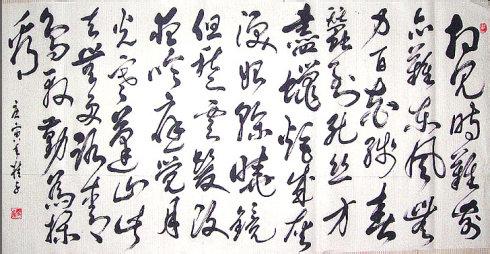 相見時難別
亦難東風無
力百花殘春
蠶到死絲方
盡蠟炬成灰
淚始乾曉鏡
但愁雲鬢改
夜吟應覺月
光寒蓬山此
去無多路青
鳥殷勤為探
看
庚寅年